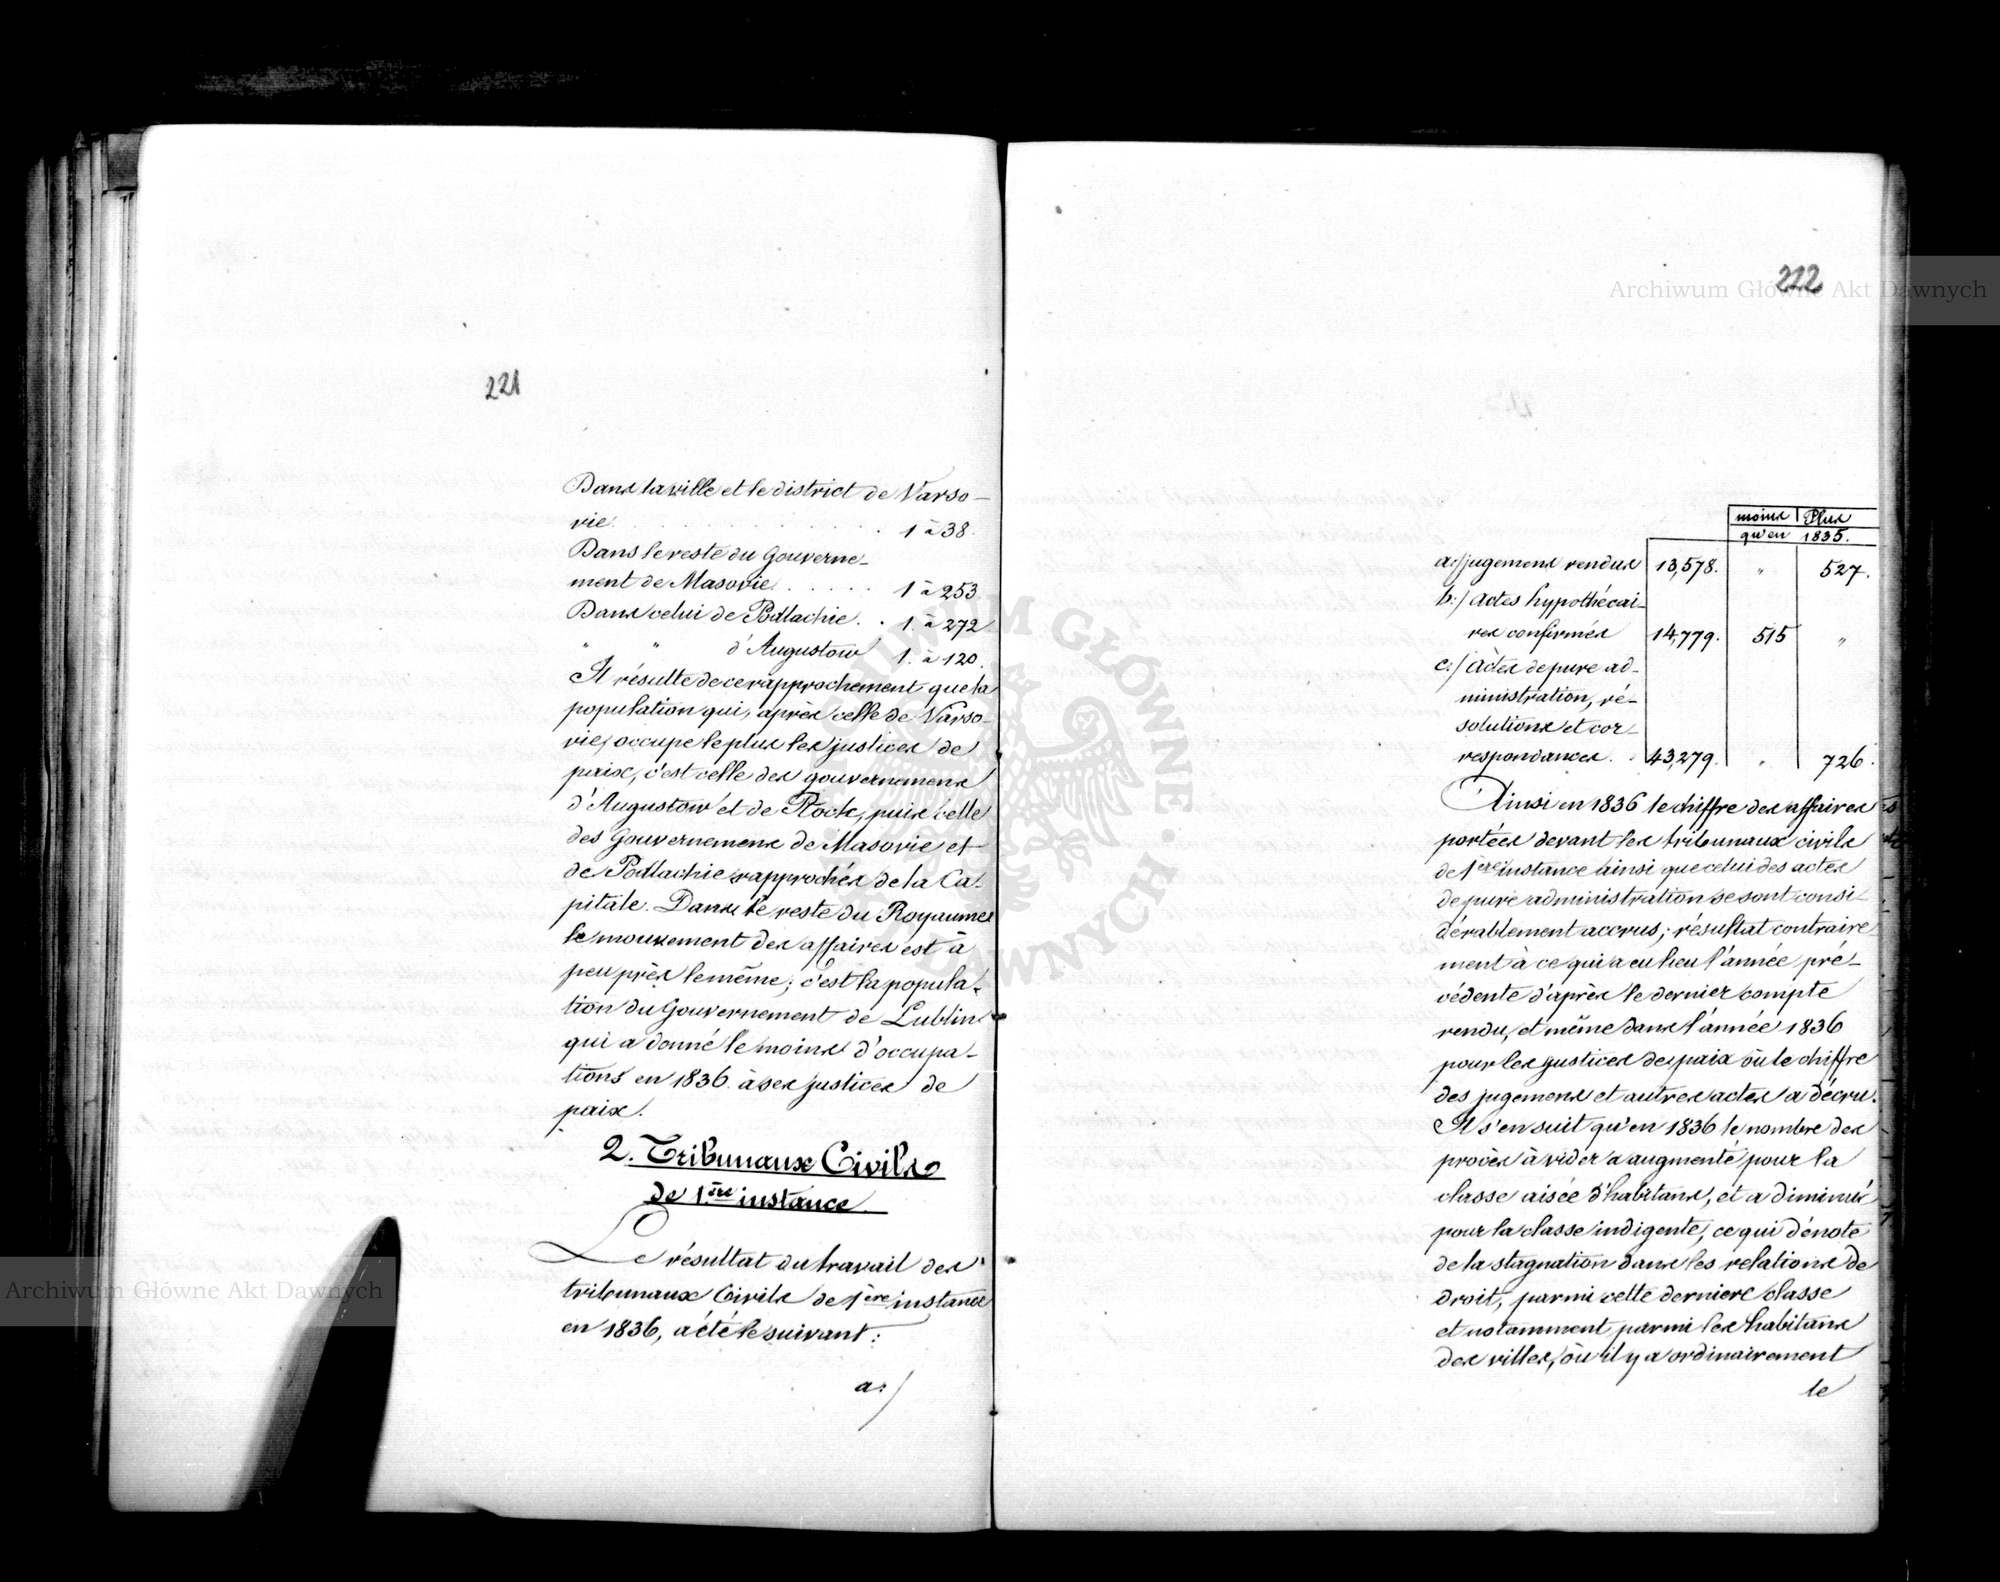 221
Dans la ville et le district de Varso-
vie . . . . . . . . . . . . 1 à 38.
Dans le reste du Gouverne-
ment de Masovie . . . . . 1 à 253.
Dans celui de Podlachie . . 1. à 272.
" " d'Augustow 1. à 120.
Il résulte de ce rapprochement que la
population qui, après celle de Varso-
vie, occupe le plus les justices de
paix, c'est celle des gouvernemens
d'Augustow et de Plock, puis celle
des Gouvernemens de Masovie et
de Podlachie rapprochés de la Ca-
pitale. Dans le reste du Royaume
le mouvement des affaires est à
peu près le même; c'est la popula-
tion du Gouvernement de Lublin
qui a donné le moins d'occupa-
tions en 1836. à ses justices de
paix.
2. Tribunaux Civils
de 1.ère instance
Le résultat du travail des
tribunaux Civils de 1ère instance
en 1836, a été le suivant:
a:/
222
moins | Plus
qu'en 1835.
a:/ jugemens rendus 13,578. " 527.
b:/ Actes hypothécai-
res confirmés 14,779. 515 "
c:/ Actes de pure ad-
ministration, ré-
solutions et cor-
respondances. . 43,279. " 726.
Ainsi en 1836 le chiffre des affaires
portées devant les tribunaux civils
de 1ère instance ainsi que celui des actes
de pure administration se sont consi-
dérablement accrus; résultat contraire-
ment à ce qui a eu lieu l'année pré-
cédente d'après le dernier compte
rendu, et même dans l'année 1836
pour les justices de paix où le chiffre
des jugemens et autres actes a décru.
Il s'en suit qu'en 1836 le nombre des
procès à vider a augmenté pour la
classe aisée d'habitans, et a diminué
pour la classe indigente, ce qui dénote
de la stagnation dans les relations de
droit, parmi cette derniere classe
et notamment parmi les habitans
des villes, où il y a ordinairement
le
Archiwum Główne Akt Dawnych
Archiwum Główne Akt Dawnych
ARCHIWUM GŁÓWNE AKT DAWNYCH